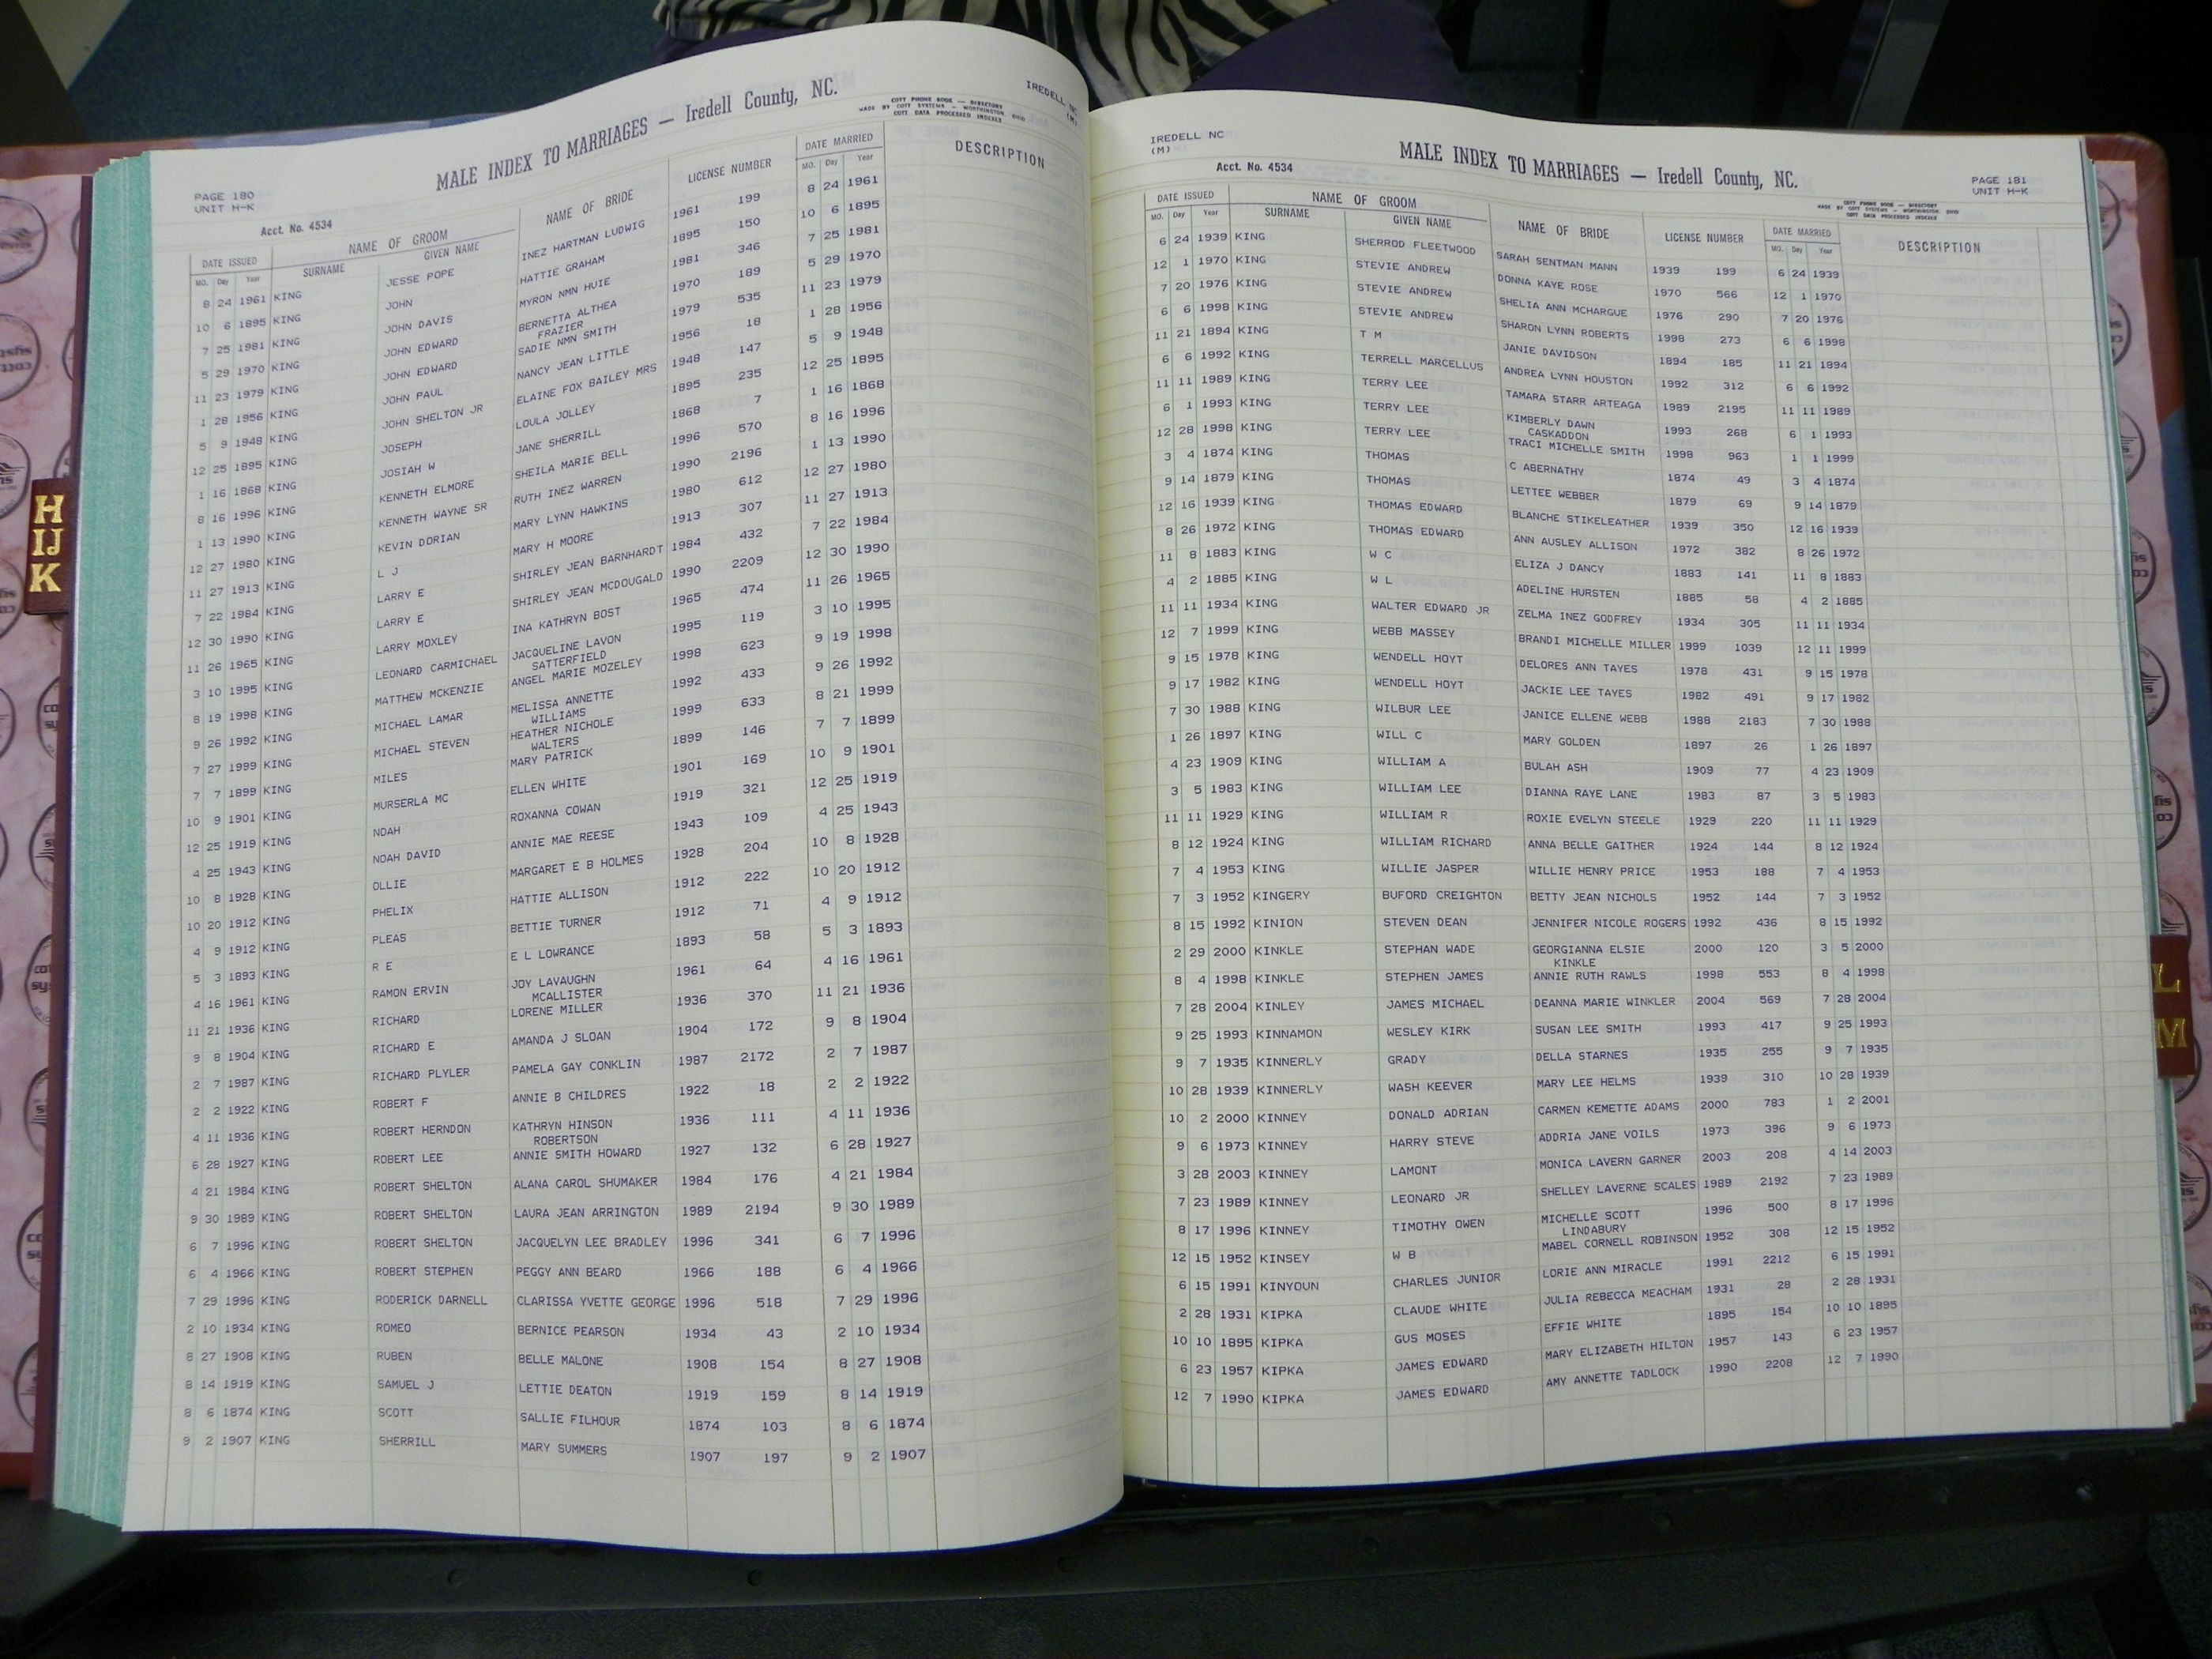 PAGE 180
UNIT H-K
MALE INDEX TO MARRIAGES — Iredell County, NC.
COTT PHONE BOOK — DIRECTORY
MADE BY COTT SYSTEMS — WORTHINGTON, OHIO
COTT DATA PROCESSED INDEXES
IREDELL NC
(M)
Acct. No. 4534
DATE ISSUED NAME OF GROOM NAME OF BRIDE LICENSE NUMBER DATE MARRIED DESCRIPTION
MO. Day Year SURNAME GIVEN NAME MO. Day Year
8 24 1961 KING JESSE POPE INEZ HARTMAN LUDWIG 1961 199 8 24 1961
10 6 1895 KING JOHN HATTIE GRAHAM 1895 150 10 6 1895
7 25 1981 KING JOHN DAVIS MYRON NMN HUIE 1981 346 7 25 1981
5 29 1970 KING JOHN EDWARD BERNETTA ALTHEA 1970 189 5 29 1970
FRAZIER
11 23 1979 KING JOHN EDWARD SADIE NMN SMITH 1979 535 11 23 1979
1 28 1956 KING JOHN PAUL NANCY JEAN LITTLE 1956 18 1 28 1956
5 9 1948 KING JOHN SHELTON JR ELAINE FOX BAILEY MRS 1948 147 5 9 1948
12 25 1895 KING JOSEPH LOULA JOLLEY 1895 235 12 25 1895
1 16 1868 KING JOSIAH W JANE SHERRILL 1868 7 1 16 1868
8 16 1996 KING KENNETH ELMORE SHEILA MARIE BELL 1996 570 8 16 1996
1 13 1990 KING KENNETH WAYNE SR RUTH INEZ WARREN 1990 2196 1 13 1990
12 27 1980 KING KEVIN DORIAN MARY LYNN HAWKINS 1980 612 12 27 1980
11 27 1913 KING L J MARY H MOORE 1913 307 11 27 1913
7 22 1984 KING LARRY E SHIRLEY JEAN BARNHARDT 1984 432 7 22 1984
12 30 1990 KING LARRY E SHIRLEY JEAN MCDOUGALD 1990 2209 12 30 1990
11 26 1965 KING LARRY MOXLEY INA KATHRYN BOST 1965 474 11 26 1965
3 10 1995 KING LEONARD CARMICHAEL JACQUELINE LAVON 1995 119 3 10 1995
SATTERFIELD
8 19 1998 KING MATTHEW MCKENZIE ANGEL MARIE MOZELEY 1998 623 9 19 1998
9 26 1992 KING MICHAEL LAMAR MELISSA ANNETTE 1992 433 9 26 1992
WILLIAMS
7 27 1999 KING MICHAEL STEVEN HEATHER NICHOLE 1999 633 8 21 1999
WALTERS
7 7 1899 KING MILES MARY PATRICK 1899 146 7 7 1899
10 9 1901 KING MURSERLA MC ELLEN WHITE 1901 169 10 9 1901
12 25 1919 KING NOAH ROXANNA COWAN 1919 321 12 25 1919
4 25 1943 KING NOAH DAVID ANNIE MAE REESE 1943 109 4 25 1943
10 8 1928 KING OLLIE MARGARET E B HOLMES 1928 204 10 8 1928
10 20 1912 KING PHELIX HATTIE ALLISON 1912 222 10 20 1912
4 9 1912 KING PLEAS BETTIE TURNER 1912 71 4 9 1912
5 3 1893 KING R E E L LOWRANCE 1893 58 5 3 1893
4 16 1961 KING RAMON ERVIN JOY LAVAUGHN 1961 64 4 16 1961
MCALLISTER
11 21 1936 KING RICHARD LORENE MILLER 1936 370 11 21 1936
9 8 1904 KING RICHARD E AMANDA J SLOAN 1904 172 9 8 1904
2 7 1987 KING RICHARD PLYLER PAMELA GAY CONKLIN 1987 2172 2 7 1987
2 2 1922 KING ROBERT F ANNIE B CHILDRES 1922 18 2 2 1922
4 11 1936 KING ROBERT HERNDON KATHRYN HINSON 1936 111 4 11 1936
ROBERTSON
6 28 1927 KING ROBERT LEE ANNIE SMITH HOWARD 1927 132 6 28 1927
4 21 1984 KING ROBERT SHELTON ALANA CAROL SHUMAKER 1984 176 4 21 1984
9 30 1989 KING ROBERT SHELTON LAURA JEAN ARRINGTON 1989 2194 9 30 1989
6 7 1996 KING ROBERT SHELTON JACQUELYN LEE BRADLEY 1996 341 6 7 1996
6 4 1966 KING ROBERT STEPHEN PEGGY ANN BEARD 1966 188 6 4 1966
7 29 1996 KING RODERICK DARNELL CLARISSA YVETTE GEORGE 1996 518 7 29 1996
2 10 1934 KING ROMEO BERNICE PEARSON 1934 43 2 10 1934
8 27 1908 KING RUBEN BELLE MALONE 1908 154 8 27 1908
8 14 1919 KING SAMUEL J LETTIE DEATON 1919 159 8 14 1919
8 6 1874 KING SCOTT SALLIE FILHOUR 1874 103 8 6 1874
9 2 1907 KING SHERRILL MARY SUMMERS 1907 197 9 2 1907
IREDELL NC
(M)
Acct. No. 4534
MALE INDEX TO MARRIAGES — Iredell County, NC.
PAGE 181
UNIT H-K
COTT PHONE BOOK — DIRECTORY
MADE BY COTT SYSTEMS — WORTHINGTON, OHIO
COTT DATA PROCESSED INDEXES
DATE ISSUED NAME OF GROOM NAME OF BRIDE LICENSE NUMBER DATE MARRIED DESCRIPTION
MO. Day Year SURNAME GIVEN NAME MO. Day Year
6 24 1939 KING SHERROD FLEETWOOD SARAH SENTMAN MANN 1939 199 6 24 1939
12 1 1970 KING STEVIE ANDREW DONNA KAYE ROSE 1970 566 12 1 1970
7 20 1976 KING STEVIE ANDREW SHELIA ANN MCHARGUE 1976 290 7 20 1976
6 6 1998 KING STEVIE ANDREW SHARON LYNN ROBERTS 1998 273 6 6 1998
11 21 1894 KING T M JANIE DAVIDSON 1894 185 11 21 1894
6 6 1992 KING TERRELL MARCELLUS ANDREA LYNN HOUSTON 1992 312 6 6 1992
11 11 1989 KING TERRY LEE TAMARA STARR ARTEAGA 1989 2195 11 11 1989
6 1 1993 KING TERRY LEE KIMBERLY DAWN 1993 268 6 1 1993
CASKADDON
12 28 1998 KING TERRY LEE TRACI MICHELLE SMITH 1998 963 1 1 1999
3 4 1874 KING THOMAS C ABERNATHY 1874 49 3 4 1874
9 14 1879 KING THOMAS LETTEE WEBBER 1879 69 9 14 1879
12 16 1939 KING THOMAS EDWARD BLANCHE STIKELEATHER 1939 350 12 16 1939
8 26 1972 KING THOMAS EDWARD ANN AUSLEY ALLISON 1972 382 8 26 1972
11 8 1883 KING W C ELIZA J DANCY 1883 141 11 8 1883
4 2 1885 KING W L ADELINE HURSTEN 1885 58 4 2 1885
11 11 1934 KING WALTER EDWARD JR ZELMA INEZ GODFREY 1934 305 11 11 1934
12 7 1999 KING WEBB MASSEY BRANDI MICHELLE MILLER 1999 1039 12 11 1999
9 15 1978 KING WENDELL HOYT DELORES ANN TAYES 1978 431 9 15 1978
9 17 1982 KING WENDELL HOYT JACKIE LEE TAYES 1982 491 9 17 1982
7 30 1988 KING WILBUR LEE JANICE ELLENE WEBB 1988 2183 7 30 1988
1 26 1897 KING WILL C MARY GOLDEN 1897 26 1 26 1897
4 23 1909 KING WILLIAM A BULAH ASH 1909 77 4 23 1909
3 5 1983 KING WILLIAM LEE DIANNA RAYE LANE 1983 87 3 5 1983
11 11 1929 KING WILLIAM R ROXIE EVELYN STEELE 1929 220 11 11 1929
8 12 1924 KING WILLIAM RICHARD ANNA BELLE GAITHER 1924 144 8 12 1924
7 4 1953 KING WILLIE JASPER WILLIE HENRY PRICE 1953 188 7 4 1953
7 3 1952 KINGERY BUFORD CREIGHTON BETTY JEAN NICHOLS 1952 144 7 3 1952
8 15 1992 KINION STEVEN DEAN JENNIFER NICOLE ROGERS 1992 436 8 15 1992
2 29 2000 KINKLE STEPHAN WADE GEORGIANNA ELSIE 2000 120 3 5 2000
KINKLE
8 4 1998 KINKLE STEPHEN JAMES ANNIE RUTH RAWLS 1998 553 8 4 1998
7 28 2004 KINLEY JAMES MICHAEL DEANNA MARIE WINKLER 2004 569 7 28 2004
9 25 1993 KINNAMON WESLEY KIRK SUSAN LEE SMITH 1993 417 9 25 1993
9 7 1935 KINNERLY GRADY DELLA STARNES 1935 255 9 7 1935
10 28 1939 KINNERLY WASH KEEVER MARY LEE HELMS 1939 310 10 28 1939
10 2 2000 KINNEY DONALD ADRIAN CARMEN KEMETTE ADAMS 2000 783 1 2 2001
9 6 1973 KINNEY HARRY STEVE ADDRIA JANE VOILS 1973 396 9 6 1973
3 28 2003 KINNEY LAMONT MONICA LAVERN GARNER 2003 208 4 14 2003
7 23 1989 KINNEY LEONARD JR SHELLEY LAVERNE SCALES 1989 2192 7 23 1989
8 17 1996 KINNEY TIMOTHY OWEN MICHELLE SCOTT 1996 500 8 17 1996
LINDABURY
12 15 1952 KINSEY W B MABEL CORNELL ROBINSON 1952 308 12 15 1952
6 15 1991 KINYOUN CHARLES JUNIOR LORIE ANN MIRACLE 1991 2212 6 15 1991
2 28 1931 KIPKA CLAUDE WHITE JULIA REBECCA MEACHAM 1931 28 2 28 1931
10 10 1895 KIPKA GUS MOSES EFFIE WHITE 1895 154 10 10 1895
6 23 1957 KIPKA JAMES EDWARD MARY ELIZABETH HILTON 1957 143 6 23 1957
12 7 1990 KIPKA JAMES EDWARD AMY ANNETTE TADLOCK 1990 2208 12 7 1990
H
IJ
K
L
M